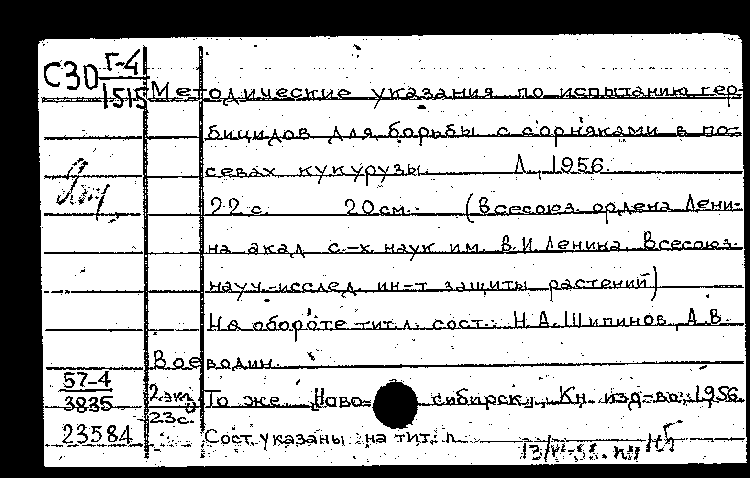 С30 Г-4
1515 Методические указания по испытанию гер-
бицидов для борьбы с сорняками в по-
севах кукурузы. Л., 1956.
22 с. 20 см. (Всесоюз. ордена Лени-
на акад. с.-х. наук им. В.И. Ленина. Всесоюз.
науч.-исслед. ин-т защиты растений)
На обороте тит. л. сост.: Н.А. Шипинов, А.В.
Воеводин.
57-4
3835 2 экз. То же. Ново- сибирск, Кн. изд-во, 1956.
23 с.
23584 Сост. указаны на тит. л.